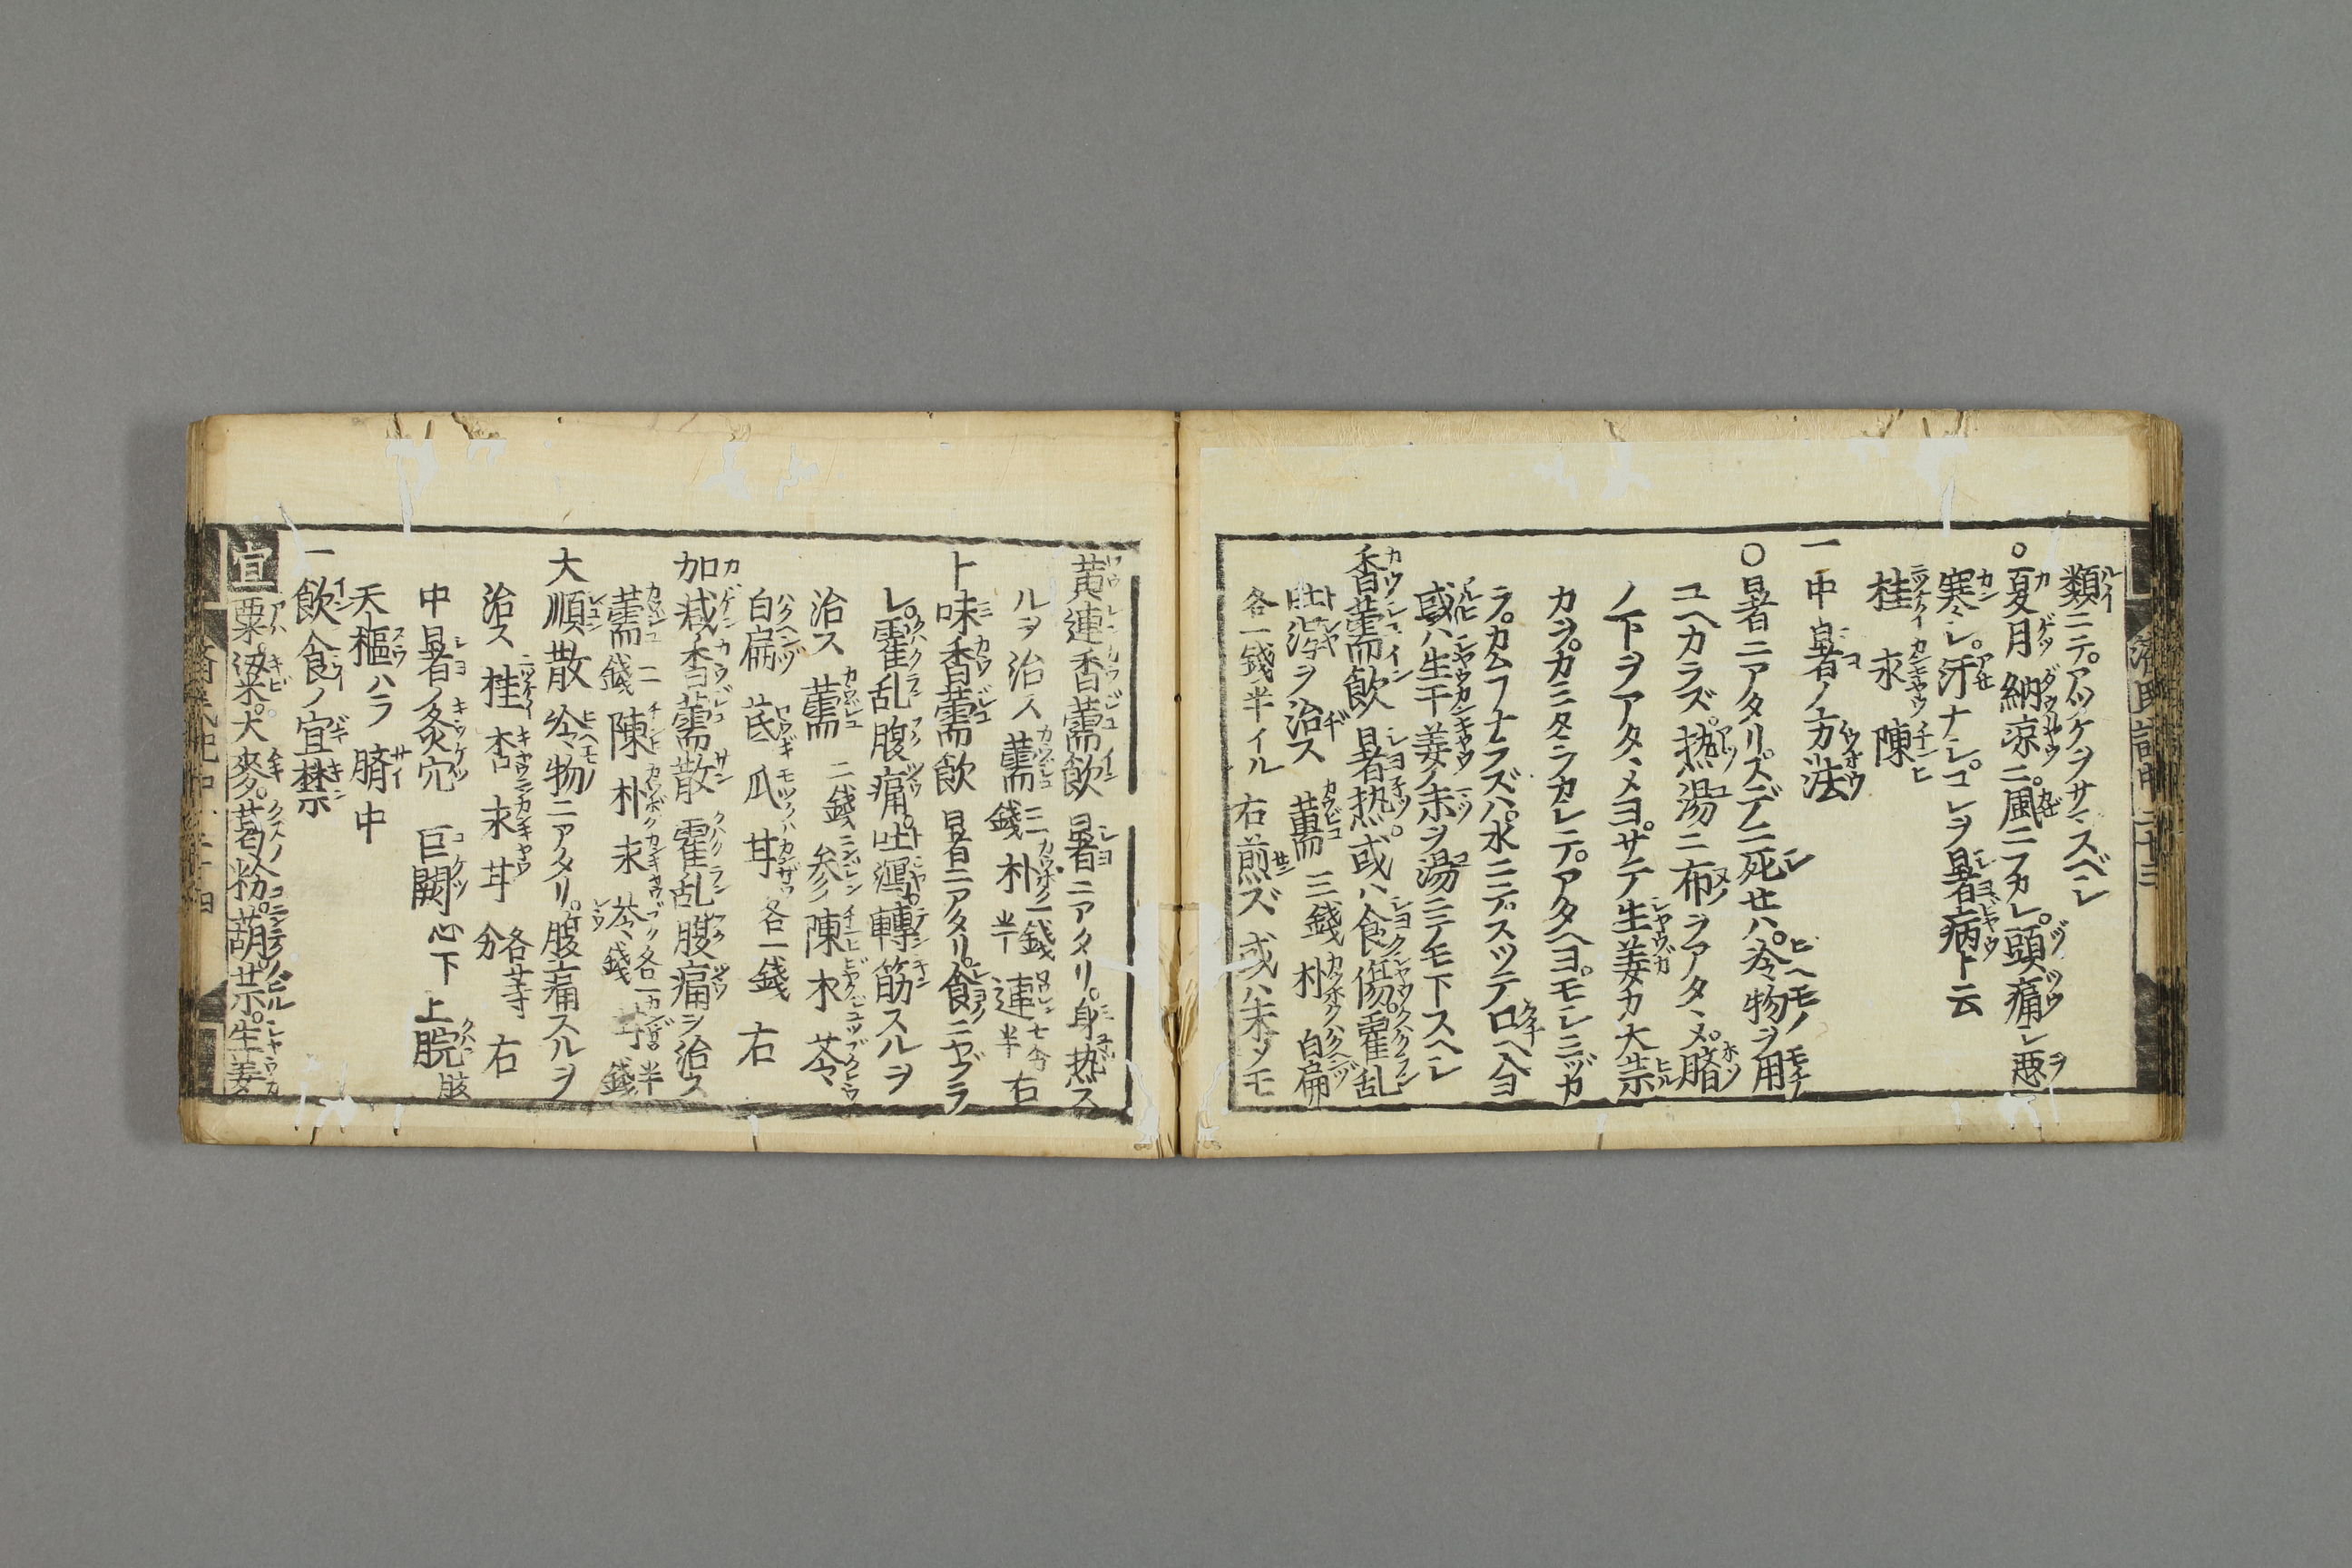 類ニテ。アツケヲサマスベシ
○夏月納涼ニ。風ニフカレ。頭痛シ悪
寒シ。汗ナシ。コレヲ暑病ト云
桂 朮 陳
一中暑ノ方法
○暑ニアタリ。スデニ死せハ。冷物ヲ用
ユヘカラズ。热湯ニ布ヲアタヽメ。臍
ノ下ヲアタヽメヨ。サテ生姜カ大蒜
カヲ。カミタラカシテ。アタヘヨ。モシミヅカ
ラ。カムコナラズハ。水ニニテ。スツテ口ヘ入ヨ
或ハ生干姜ノ末ヲ湯ニテモ下スヘシ
香薷飲 暑热。或ハ食傷。霍乱
吐瀉ヲ治ス 薷三錢 朴 白扁
各一錢半イル 右煎ズ 或ハ末メモ
黄連香薷飲 暑ニアタリ。身热ス
ルヲ治ス 薷三錢 朴二錢半 連七分半 右
十味香薷飲 暑ニアタリ。食ニヤブラ
レ。霍乱腹痛。吐瀉。轉筋スルヲ
治ス 薷二錢 参 陳 朮 苓
白扁 茋 瓜 甘各一錢 右
加减香薷散 霍乱腹痛ヲ治ス
薷二錢 陳 朴 朮 苓各一錢 甘半錢
大順散 冷物ニアタリ。腹痛スルヲ
治ス 桂 杏 朮 甘各等分 右
中暑ノ灸穴 巨闕心下 上脘
天樞ハラ 臍中
一飲食ノ宜禁
宜 粟。粱。大麥。葛粉。葫。蒜。生姜